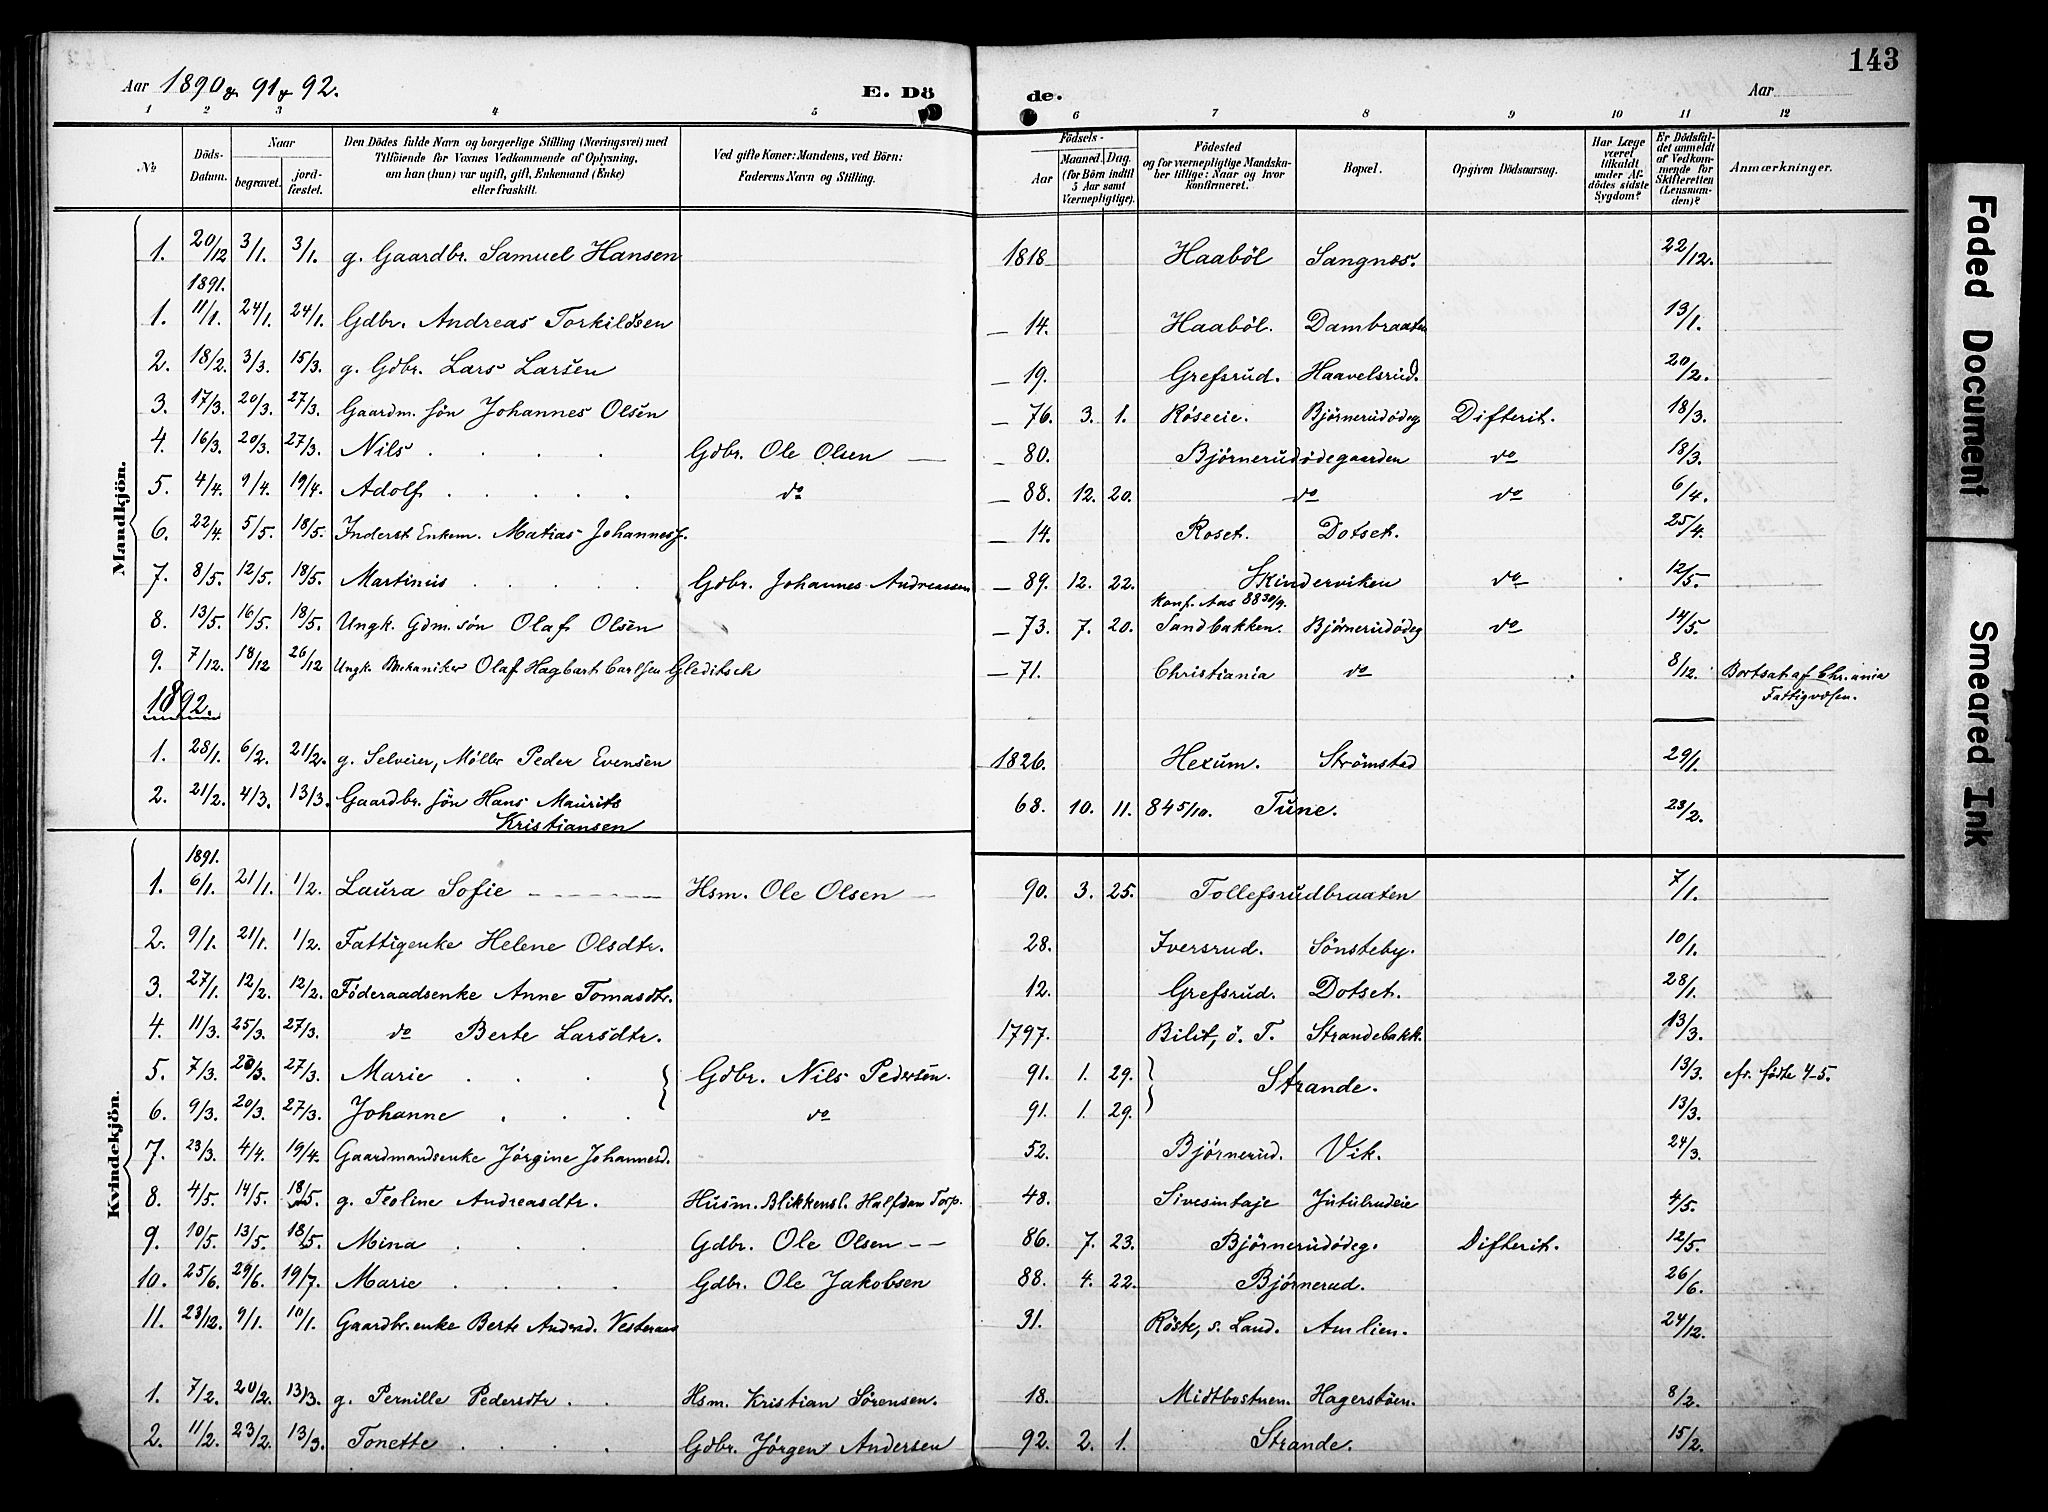 143
Aar 1890 & 91 & 92.
E. Dö
de.
Aar
1 2 3 4 5 6 7 8 9 10 11 12
No
Döds-Datum.
Naar
begravet.
jord-fæstet.
Den Dödes fulde Navn og borgerlige Stilling (Næringsvei) med
Tilföiende for Voxnes Vedkommende af Oplysning,
om han (hun) var ugift, gift, Enkemand (Enke)
eller fraskilt.
Ved gifte Koner: Mandens, ved Börn:
Faderens Navn og Stilling.
Födsels-
Aar
Maaned. Dag.
(for Börn indtil
5 Aar samt
Værnepligtige).
Födested
og for værnepligtige Mandska-
ber tillige: Naar og hvor
konfirmeret.
Bopæl.
Opgiven Dödsaarsag.
Har Læge
været
tilkaldt
under Af-
dödes sidste
Sygdom?
Er Dödsfal-
det anmeldt
af Vedkom-
mende for
Skifteretten
(Lensman-
den)?
Anmærkninger.
Mandkjön.
1. 20/12 3/1. 3/1. g. Gaardbr. Samuel Hansen 1818 Haaböl Sangnæs. 22/12.
1891.
1. 11/1. 24/1. 24/1. Gdbr. Andreas Torkildsen — 14. Haaböl. Dambraaten 13/1.
2. 18/2. 3/3. 15/3. g. Gdbr. Lars Larsen — 19. Grefsrud. Haavelsrud. 20/2.
3. 17/3. 20/3. 27/3. Gaardm. sön Johannes Olsen — 76. 3. 1. Röseeie. Björnerudödeg Difterit. 18/3.
4. 16/3. 20/3. 27/3. Nils Gdbr. Ole Olsen — — 80. Björnerudödegaarden do 18/3.
5. 4/4. 9/4. 19/4. Adolf do — 88. 12. 20. do do 6/4.
6. 22/4. 5/5. 18/5. Inderst Enkem. Matias Johannesf. — 14. Roset. Dotset. 25/4.
7. 8/5. 12/5. 18/5. Martinus Gdbr. Johannes Andreassen — 89. 12. 22. Skinderviken do 12/5.
Konf. Aas 88 30/9.
8. 13/5. 16/5. 18/5. Ungk. Gdm. sön Olaf Olsen — 73. 7. 20. Sandbakken. Björnerudödeg do 14/5.
9. 7/12. 18/12 26/12 Ungk. Mekaniker Olaf Hagbart Carlsen Gleditsch — 71. Christiania do 8/12. Bortsat af Chr.ania
Fattigvæsen.
1892.
1. 28/1. 6/2. 21/2. g. Selveier, Möller Peder Evensen 1826. Hexum. Strömstad 29/1.
2. 21/2. 4/3. 13/3. Gaardbr. sön Hans Maurits 68. 10. 11. 84 5/10. Tune. 23/2.
Kristiansen
Kvindekjön.
1891.
1. 6/1. 21/1. 1/2. Laura Sofie Hsm. Ole Olsen — 90. 3. 25. Tollefsrudbraaten 7/1.
2. 9/1. 21/1. 1/2. Fattigenke Helene Olsdtr. 28. Iversrud. Sönsteby. 10/1.
3. 27/1. 12/2. 12/2. Föderaadsenke Anne Tomasdtr. 12. Grefsrud. Dotset. 28/1.
4. 11/3. 25/3. 27/3. do Berte Larsdtr. 1797. Bilit, ö. T. Strandebakk. 13/3.
5. 7/3. 20/3. 27/3. Marie Gdbr. Nils Pedersen. 91. 1. 29. Strande. 13/3. fødte 4-5.
6. 9/3. 20/3. 27/3. Johanne do 91. 1. 29. 13/3.
7. 23/3. 4/4. 19/4. Gaardmandsenke Jörgine Johannesd. 52. Björnerud. Vik. 24/3.
8. 4/5. 14/5. 18/5. g. Teoline Andreasdtr. Husm. Blikkensl. Halfdan Torp. 48. Sivesintaje Jutulrudeie 4/5.
9. 10/5. 13/5. 18/5. Mina Gdbr. Ole Olsen — — 86. 7. 23. Björnerudödeg. Difterit. 12/5.
10. 25/6. 29/6. 19/7. Marie Gdbr. Ole Jakobsen 88. 4. 22. Björnerud. 26/6.
11. 23/12. 9/1. 10/1. Gaardbr.enke Berte Andersd. Vesteraas 31. Röste, s. Land. Amlien. 24/12.
1. 7/2. 20/2. 13/3. g. Pernille Pedersdtr Hsm. Kristian Sörensen. 18. Midtbostuen. Hagerstöen. 8/2.
2. 11/2. 23/2. 13/3. Tonette Gdbr. Jörgen Andersen 92. 2. 1. Strande. 15/2.
Faded Document
Smeared Ink